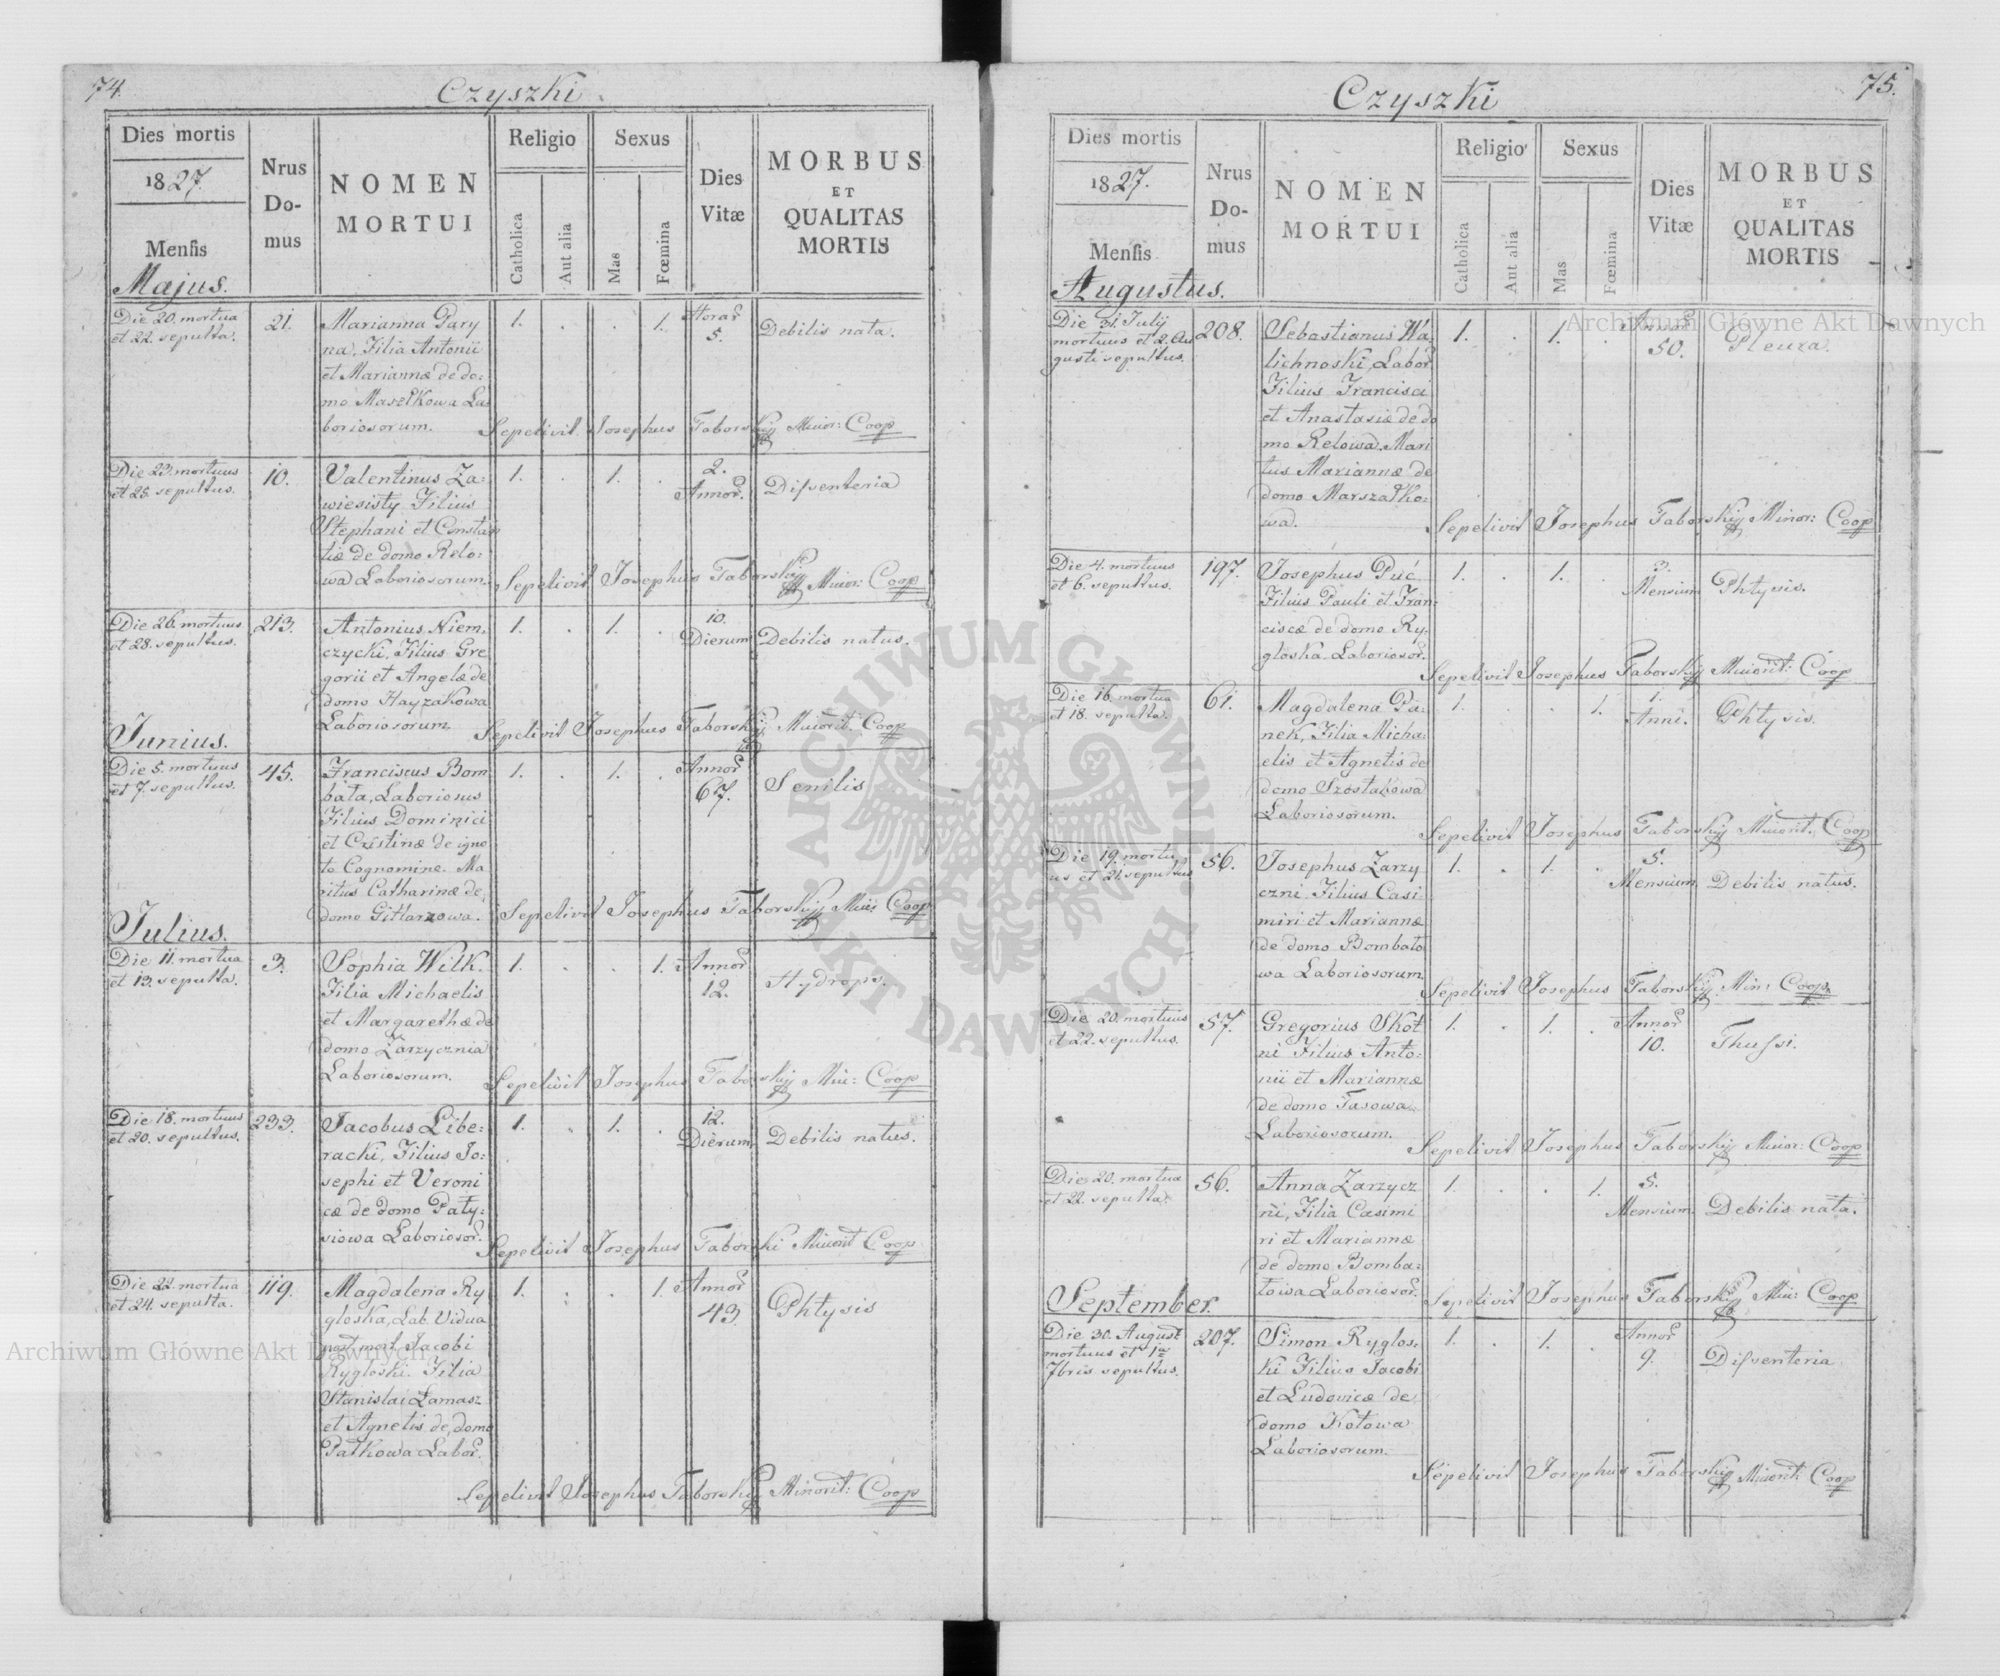 74.
Czyszki
Dies mortis
1827.
Mensis
Nrus
Do-
mus
NOMEN
MORTUI
Religio
Catholica
Aut alia
Sexus
Mas
Fœmina
Dies
Vitæ
MORBUS
ET
QUALITAS
MORTIS
Majus.
Die 20. mortua
et 22. sepulta.
21.
Marianna Pary
na, Filia Antonii
et Mariannæ de do:
mo Maszłkowa La:
boriosorum.
1. . . 1.
Horar
5.
Debilis nata.
Sepelivit Josephus Taborskij Minor: Coop
Die 23. mortuus
et 25. sepultus.
10.
Valentinus Za:
wiesisty Filius
Stephani et Constan
tiæ de domo Relo:
wa Laboriosorum.
1. . 1. .
2.
Annor.
Disenteria
Sepelivit Josephus Taborskij Minor: Coop
Die 26. mortuus
et 28. sepultus.
213.
Antonius Niem,
czycki, Filius Gre
gorii et Angelæ de
domo Hayzakowa
Laboriosorum.
1. . 1. .
10.
Dierum
Debilis natus.
Sepelivit Josephus Taborskij Minorit: Coop
Junius.
Die 5. mortuus
et 7. sepultus.
45.
Franciscus Bom
bała, Laboriosus
Filius Dominici
et Cristinæ de igno
to Cognomine. Ma
ritus Catharinæ de
domo Gitlarzowa.
1. . 1. .
Annor
67.
Senilis
Sepelivit Josephus Taborskij Min: Coop
Julius.
Die 11. mortua
et 13. sepulta.
3.
Sophia Wilk.
Filia Michaelis
et Margarethæ de
domo Zarzycznia
Laboriosorum.
1. . . 1.
Annor
12.
Hydrops.
Sepelivit Josephus Taborskij Min: Coop
Die 18. mortuus
et 20. sepultus.
233.
Jacobus Libe:
racki, Filius Jo:
sephi et Veroni
cæ de domo Paty:
siowa Laborios̃or.
1. . 1. .
12.
Dierum
Debilis natus.
Sepelivit Josephus Taborski Minorit Coop
Die 22. mortua
et 24. sepulta.
119.
Magdalena Ry
gloska, Lab. Vidua
post mort Jacobi
Rygloski. Filia
Stanislai Łamasz
et Agnetis de domo
Pałkowa Labor.
1. : . 1.
Annor
43.
Phtysis
Sepelivit Josephus Taborskij Minorit: Coop
75.
Czyszki
Dies mortis
1827.
Mensis
Nrus
Do-
mus
NOMEN
MORTUI
Religio
Catholica
Aut alia
Sexus
Mas
Fœmina
Dies
Vitæ
MORBUS
ET
QUALITAS
MORTIS
Augustus.
Die 31. Julij
mortuus et 2. Au
gusti sepultus.
208.
Sebastianus Wa:
lichnoski, Labor
Filius Francisci
et Anastasiæ de do
mo Relowa. Mari
tus Mariannæ de
domo Marszałko:
wa.
1. . 1. .
Annor
50.
Pleura.
Sepelivit Josephus Taborskij Minor: Coop
Die 4. mortuus
et 6. sepultus.
197.
Josephus Puć
Filius Pauli et Fran:
ciscæ de domo Ry:
gloska Laboriosor.
1. . 1. .
3.
Mensium
Phtysis.
Sepelivit Josephus Taborskij Minorit: Coop
Die 16. mortua
et 18. sepulta.
61.
Magdalena Pa:
nek, Filia Micha:
elis et Agnetis de
domo Szostakowa
Laboriosorum.
1. . . 1.
1.
Anni.
Phtysis.
Sepelivit Josephus Taborskij Minorit: Coop
Die 19. mortu
us et 21. sepultus
56.
Josephus Zarzy
czni, Filius Casi:
miri et Mariannæ
de domo Bombało
wa Laboriosorum
1. . 1. .
5.
Mensium.
Debilis natus.
Sepelivit Josephus Taborskij Min: Coop.
Die 20. mortuus
et 22. sepultus.
57.
Gregorius Skot
ni Filius Anto:
nii et Mariannæ
de domo Tasowa
Laboriosorum.
1. . 1. .
Annor
10.
Thussi.
Sepelivit Josephus Taborskij Minor: Coop
Die 20. mortua
et 22. sepulta.
56.
Anna Zarzycz
ni, Filia Casimi
ri et Mariannæ
de domo Bomba:
łowa Laboriosor.
1. . . 1.
5.
Mensium.
Debilis nata.
Sepelivit Josephus Taborskij Min: Coop
September.
Die 30. August
mortuus et 1ª
7bris sepultus.
207.
Simon Ryglos:
ki Filius Jacobi
et Ludovicæ de
domo Kotowa
Laboriosorum.
1. . 1. .
Annor
9.
Disenteria
Sepelivit Josephus Taborskij Minorit: Coop
Archiwum Główne Akt Dawnych
Archiwum Główne Akt Dawnych
ARCHIWUM GŁÓWNE AKT DAWNYCH